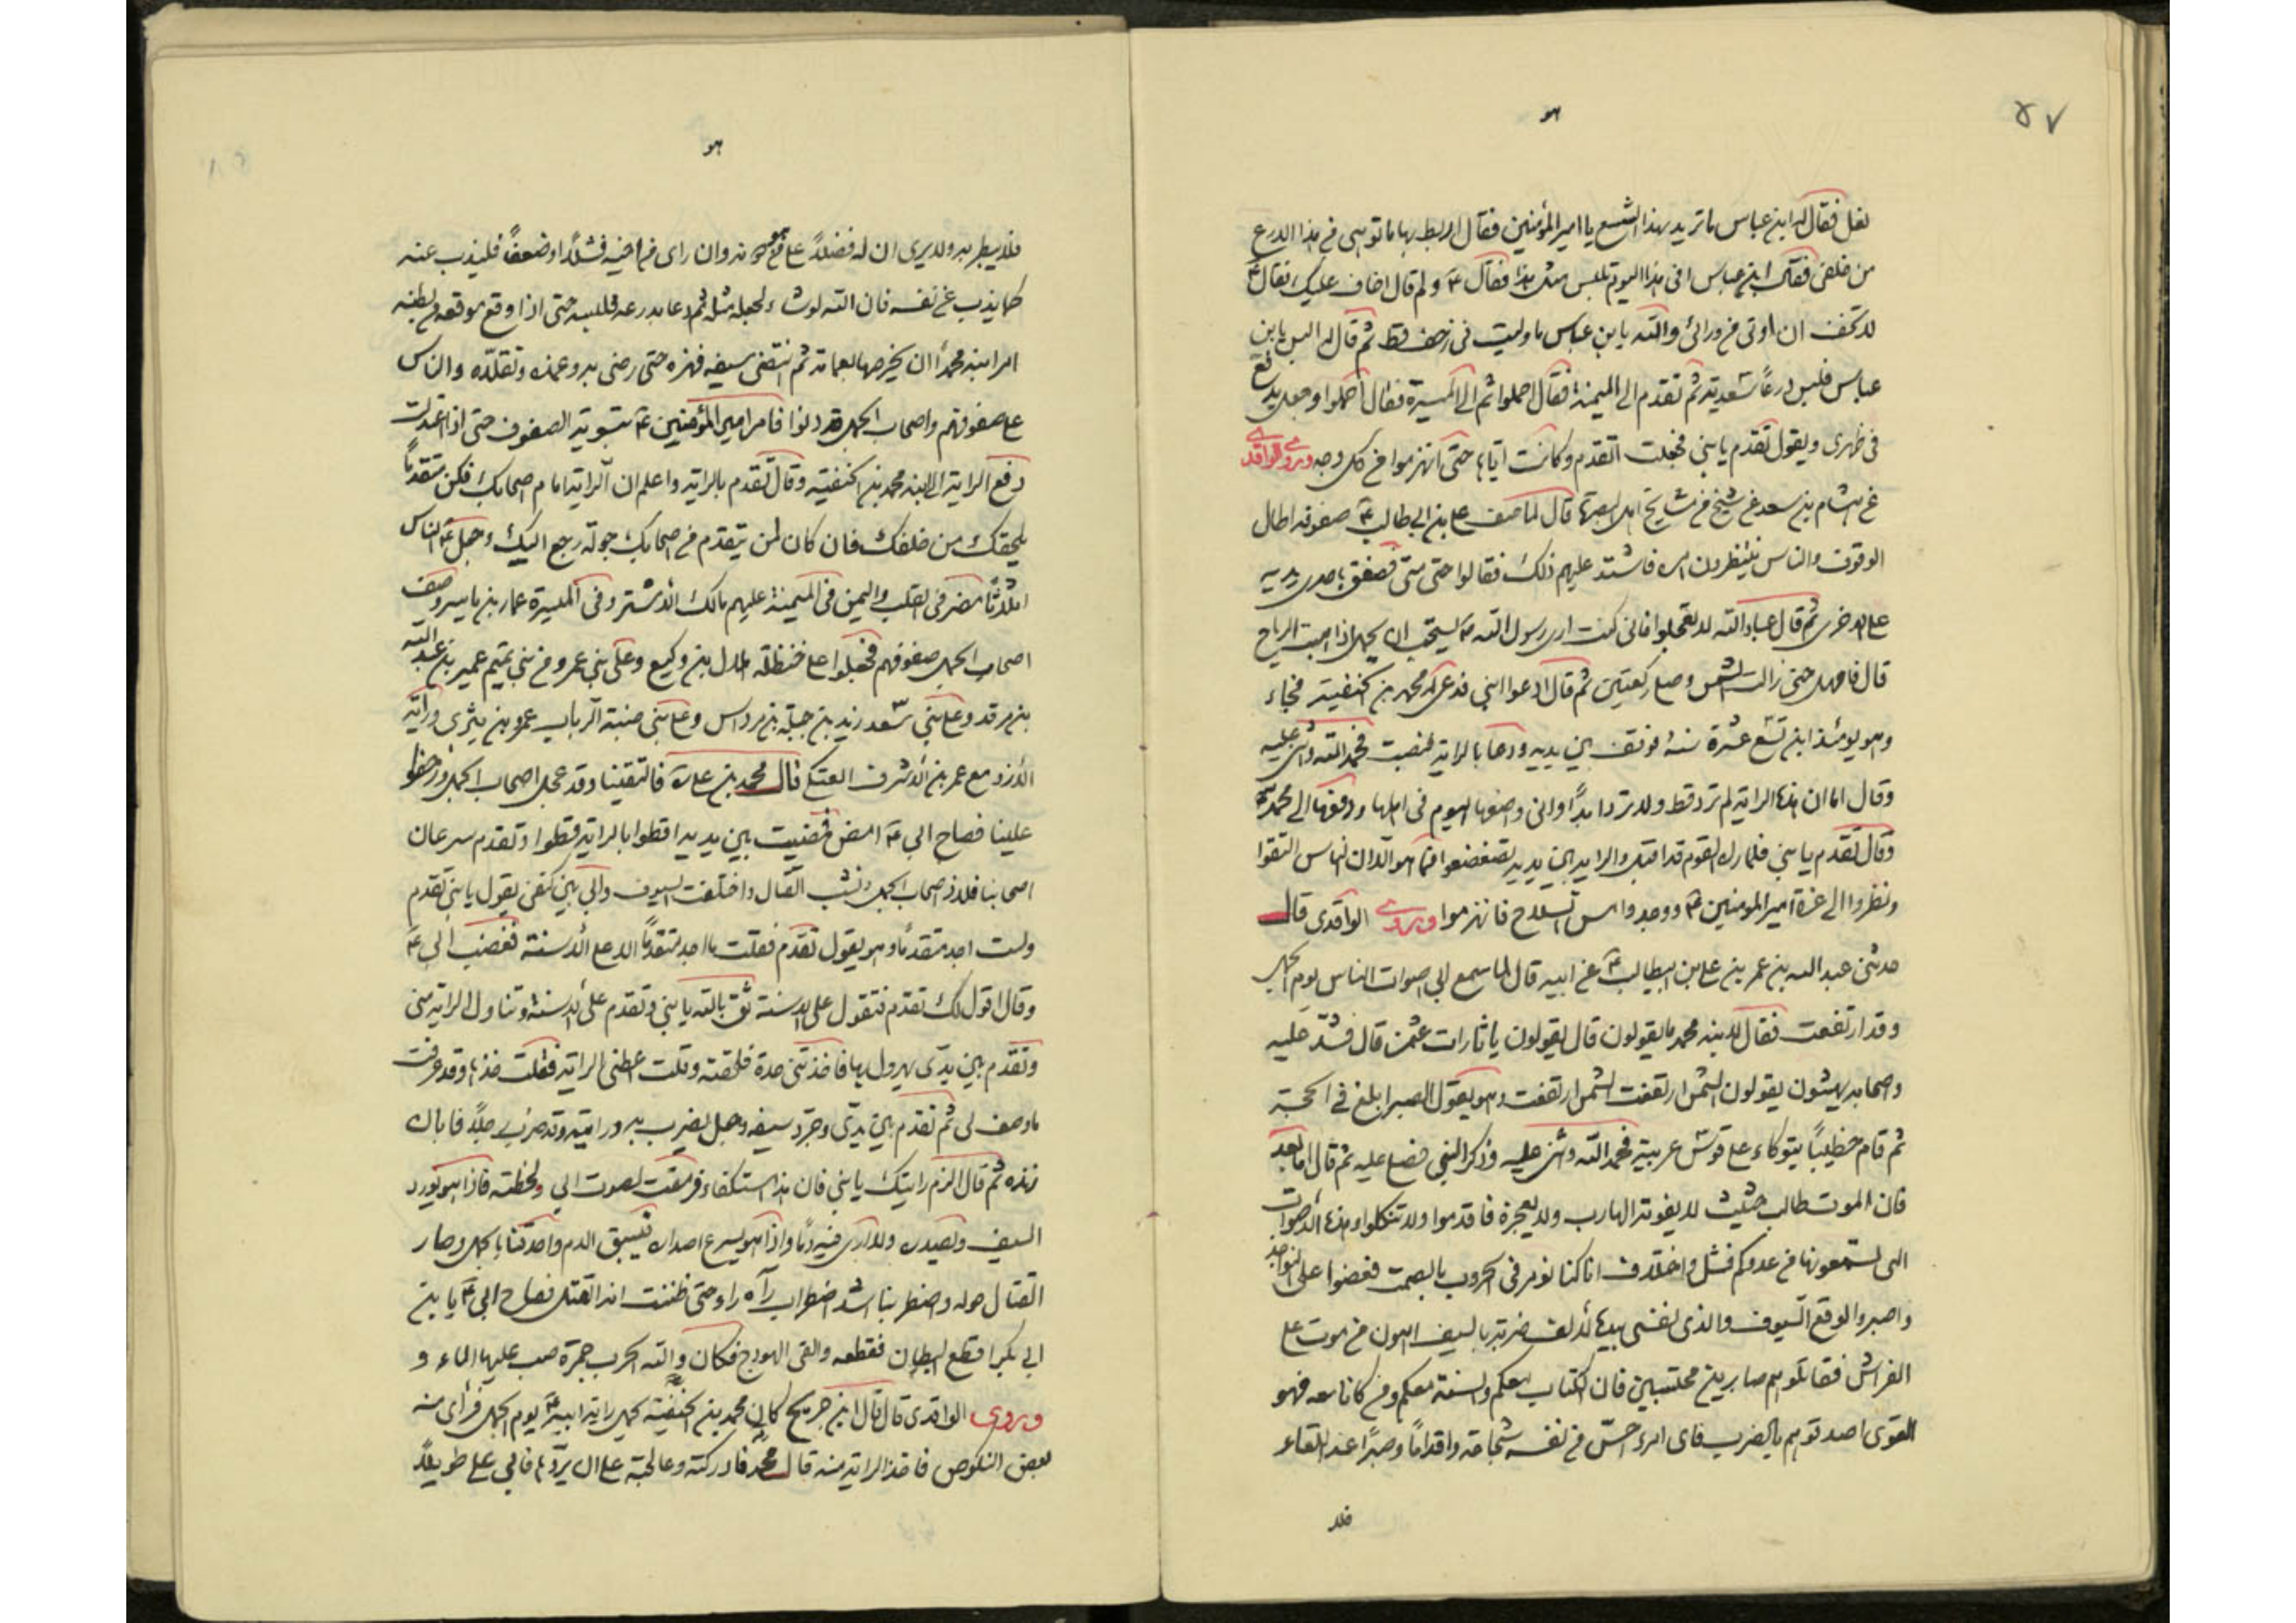 هو
۵۷
نعل فقال له ابن عباس ما تريد بهذا الشسع يا امير المؤمنين فقال اربط بها ما توهى فى هذا الدرع
من خلفى فقال ابن عباس افى هذا اليوم تلبس مثل هذا فقال ع و لم قال اخاف عليك فقال ع
لا تخف ان اوتى من ورائى والله يا بن عباس ما وليت فى زحف قط ثم قال له البس يا بن
عباس فلبس درعًا سعدية ثم تقدم الى الميمنة فقال احملوا ثم الى الميسرة فقال احملوا وجعل يدفع
فى ظهرى ويقول تقدم يا بنى فجعلت اتقدم وكانت اياها حتى انهزموا من كل وجه وروى الواقدى
عن هشام بن سعد عن شيخ من مشايخ اهل البصرة قال لما صف على بن ابى طالب ع صفوفه اطال
الوقوف والناس ينتظرون امره فاشتد عليهم ذلك فقالوا حتى متى فصفق باحدى يديه
على الاخرى ثم قال عباد الله لا تعجلوا فانى كنت ارى رسول الله ص يستحب ان يحمل اذا هبت الرياح
قال فامهل حتى زالت الشمس وصلى ركعتين ثم قال ادعوا ابنى فدعى له محمد بن الحنفية فجاء
وهو يومئذ ابن تسع عشرة سنة فوقف بين يديه ودعا بالراية فنصبت فحمد الله واثنى عليه
وقال اما ان هذه الراية لم ترد قط ولا ترد ابدًا وانى واضعها اليوم فى اهلها ودفعها الى محمد
وقال تقدم يا بنى فلما راه القوم قد اقبل والراية بين يديه تضعضعوا فما هو الا ان الناس التقوا
ونظروا الى غرة امير المؤمنين ع ووجدوا مس السلاح فانهزموا وروى الواقدى قال
حدثنى عبد الله بن عمر بن على بن ابيطالب ع عن ابيه قال لما سمع ابى اصوات الناس يوم الجمل
وقد ارتفعت فقال لابنه محمد ما يقولون قال يقولون يا ثارات عثمن قال فشد عليه
واصحابه يهشون يقولون الشمس ارتفعت الشمس ارتفعت وهو يقول الصبر ابلغ فى الحجة
ثم قام خطيبًا يتوكاء على قوس عربية فحمد الله واثنى عليه وذكر النبى فصلى عليه ثم قال اما بعد
فان الموت طالب حثيث لا يفوته الهارب ولا يعجزه فاقدموا ولا تنكلوا وهذه الاصوات
التى تسمعونها من عدوكم فشل واختلاف انا كنا نؤمر فى الحروب بالصمت فعضوا على النواجد
واصبروا لوقع السيوف فالذى نفسى بيده لالف ضربة بالسيف اهون من موت على
الفراش فقاتلوهم صابرين محتسبين فان الكتاب معكم والسنة معكم ومن كانا معه فهو
القوى اصدقوهم بالضرب فاى امرء احس من نفسه شجاعة واقدامًا وصبرًا عند اللقاء
فلا
هو
فلا يبطر به ولا يرى ان له فضلًا على من هو دونه وان راى من اخيه فشلًا وضعفًا فليذب عنه
كما يذب عن نفسه فان الله لو شاء لجعله مثله ثم دعا بدرعه فلبسه حتى اذا وقع موقعه من بطنه
امر ابنه محمدًا ان يحزمها بعمامة ثم انتضى سيفه فهزه حتى رضى به وغمده وتقلده والناس
على صفوفهم واصحاب الجمل قد دنوا فامر امير المؤمنين ع بتسوية الصفوف حتى اذا اعتدلت
دفع الراية الى ابنه محمد بن الحنفية وقال تقدم بالراية واعلم ان الراية امام اصحابك فكن متقدمًا
يلحقك من خلفك فان كان لمن يتقدم من اصحابك جولة رجع اليك وجعل ع الناس
اثلاثًا مضر فى القلب واليمن فى الميمنة عليهم مالك الاشتر وفى الميسرة عمار بن ياسر وصف
اصحاب الجمل صفوفهم فجعلوا على حنظلة هلال بن وكيع وعلى بنى عمرو من بنى تميم عمير بن عبد الله
بن مرقد وعلى بنى سعد زيد بن جبلة بن مرداس وعلى بنى ضبة الرباب عمرو بن يثرى وراية
الازد مع عمر بن الاشرف العتكى قال محمد بن على ع فالتقينا وقد عجل اصحاب الجمل وزحفوا
علينا فصاح ابى ع امض فمضيت بين يديه اقطوا بالراية قطوا وتقدم سرعان
اصحابنا فلاذ اصحاب الجمل ونشب القتال واختلفت السيوف وابى بين كتفى يقول يا بنى تقدم
ولست اجد متقدمًا وهو يقول تقدم فقلت ما اجد متقدمًا الا على الاسنة فغضب ابى ع
وقال اقول لك تقدم فتقول على الاسنة ثق بالله يا بنى وتقدم على الاسنة وتناول الراية منى
وتقدم بين يدى يهرول بها فاخذتنى حدة فلحقته وقلت اعطنى الراية فقلت خذها وقد عرفت
ما وصف لى ثم تقدم بين يدى وجرد سيفه وجعل يضرب به ورايته وقد ضرب رجلًا فابان
زنده ثم قال الزم رايتك يا بنى فان هذا استكفاء فرمقت لصوت ابى ولحظته فاذا هو يورد
السيف ويصدره ولا ارى فيه دمًا واذا هو يسرع اصداره فيسبق الدم واحدقنا بالجمل وصار
القتال حوله واضطربنا اشد اضطراب رآه راء حتى ظننت انه القتل فصاح ابى ع يا بن
ابى بكر اقطع البطان فقطعه والقى الهودج فكان والله الحرب جمرة صب عليها الماء و
وروى الواقدى قال قال ابن جريح كان محمد بن الحنفية يحمل راية ابيه ع يوم الجمل فرأى منه
بعض النكوص فاخذ الراية منه قال محمد فادركته وعالجته على ان يردها فابى على طويلًا